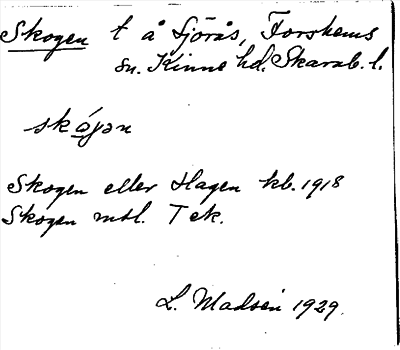 Skogen t å Sjörås, Forshems
sn. Kinne hd. Skarab. l.
skógən
Skogen eller Hagen kb. 1918
Skogen mtl. T ek.
L. Madsén 1929.